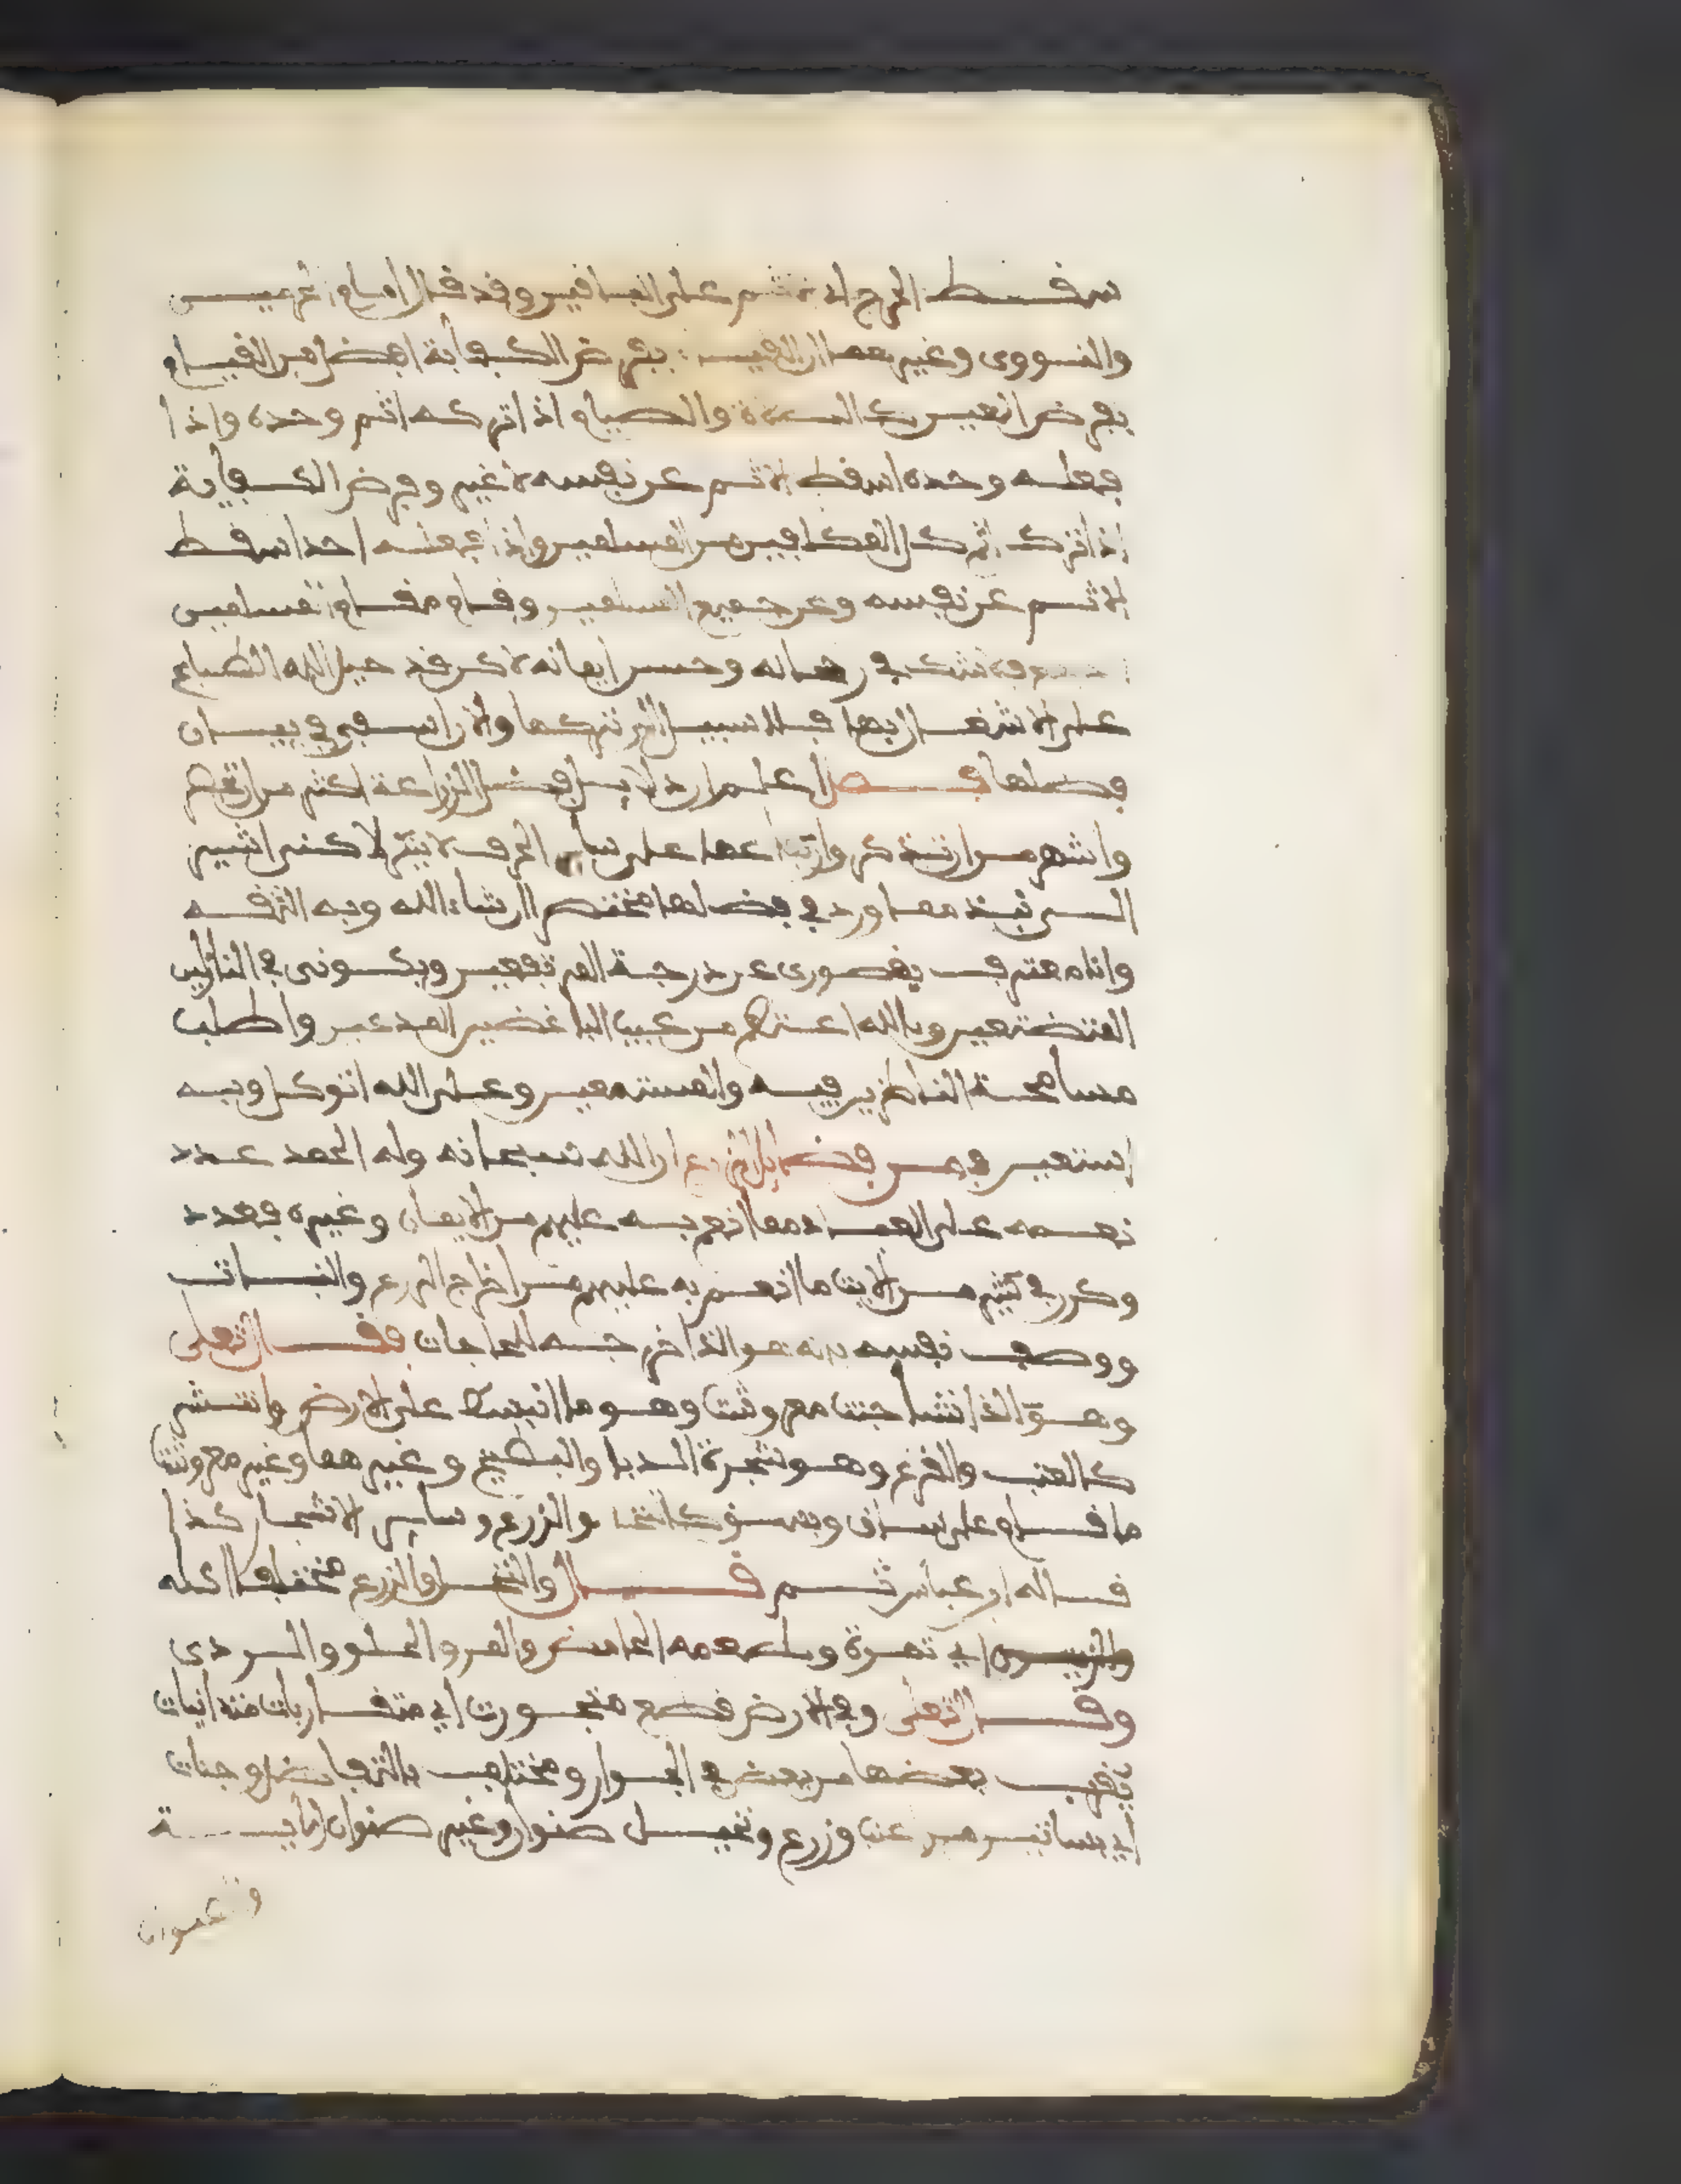 سقط الحرج والاثم على الباقين وقد قال امام الحرمين
والنووي وغيرهما ان القيام بفرض الكفاية افضل من القيام
بفرض العين كالصلاة والصيام اذا تركه اثم وحده واذا
فعله وحده اسقط الاثم عن نفسه لا غير وفرض الكفاية
اذا ترك اثم كل المكلفين من المسلمين واذا فعله احد اسقط
الاثم عن نفسه وعن جميع المسلمين وقام مقام المسلمين
فلا شك في رجحانه وحسن ايمانه لاكن قد جبل الله الطباع
على الاشتغال بها فلا سبيل الى تركها والان اسفر في بيان
فضلها فصل اعلم ان دلايل فضل الزراعة اكثر من ان تحصر
واشهر من ان تذكر وارتفاعها على ساير الحرف لا ينكر لاكن اشير
الى نبذ مما ورد في فضلها مختصرا ان شاء الله وبه الثقة
وانا معترف بقصوري عن درجة المرتفعين وبكوني في النازلين
المتضعين وبالله اعتصم من عيب الباغضين المدعين واطلب
مسامحة الناظرين فيه والمستمعين وعلى الله اتوكل وبه
استعين فمن فضايل الزرع ان الله سبحانه وله الحمد عدد
نعمه على العباد مما انعم به عليهم من الايمان وغيره فعدد
وكرر في كثير من الايت ما انعم به عليهم من اخراج الزرع والنبات
ووصف نفسه بانه هو الذي اخرجه للحاجات فقال تعلى
وهو الذي انشا جنت معروشت وهو ما انبسط على الارض وانتشر
كالعنب والقرع وهو شجرة الدبا والبطيخ وغيرهما وغير معروشت
ما قام على ساق وبسق كالنخل والزرع وساير الاشجار كذا
قاله ابن عباس ثم قال والنخل والزرع مختلفا اكله
اي ثمرة وطعمه الحامض والمر والحلو والردي
وقال تعلى وفي الارض قطع متجورت اي متقاربات متدانيات
يقرب بعضها من بعض في الجوار ومختلف بالتفاضل وجنات
اي بساتين من عنب وزرع ونخيل صنوان وغير صنوان